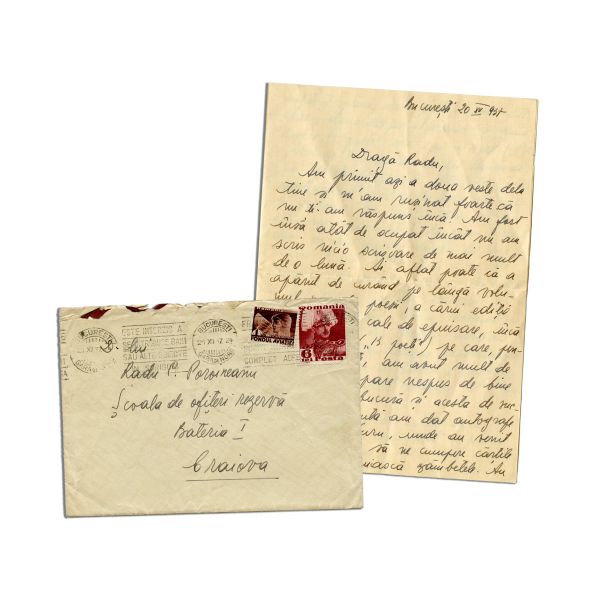 București 20 XI 935
Dragă Radu,
Am primit azi a doua veste dela
tine și m'am rușinat foarte că
nu ți-am răspuns încă. Am fost
însă atât de ocupat încât nu am
scris nicio scrisoare de mai mult
de o lună. Ai aflat poate că a
apărut de curând pe lângă volu-
mul poem, a cărui ediții
cale de epuisare, încă
"13 poeți") pe care,
am avut mult de
pare nespus de bine
bucură și acesta de suc-
am dat autografe
unde au venit
să ne cumpere cărțile
zâmbetele. Am
BUCUREȘTI
ESTE INTERZIS A
BANI
SAU ALTE
BUCUREȘTI
COMPLET
FONDUL AVIAȚIEI
ROMANIA
6
LEI POSTA
Lui
Radu P. Poroineanu
Școala de ofițeri rezervă
Bateria I
Craiova